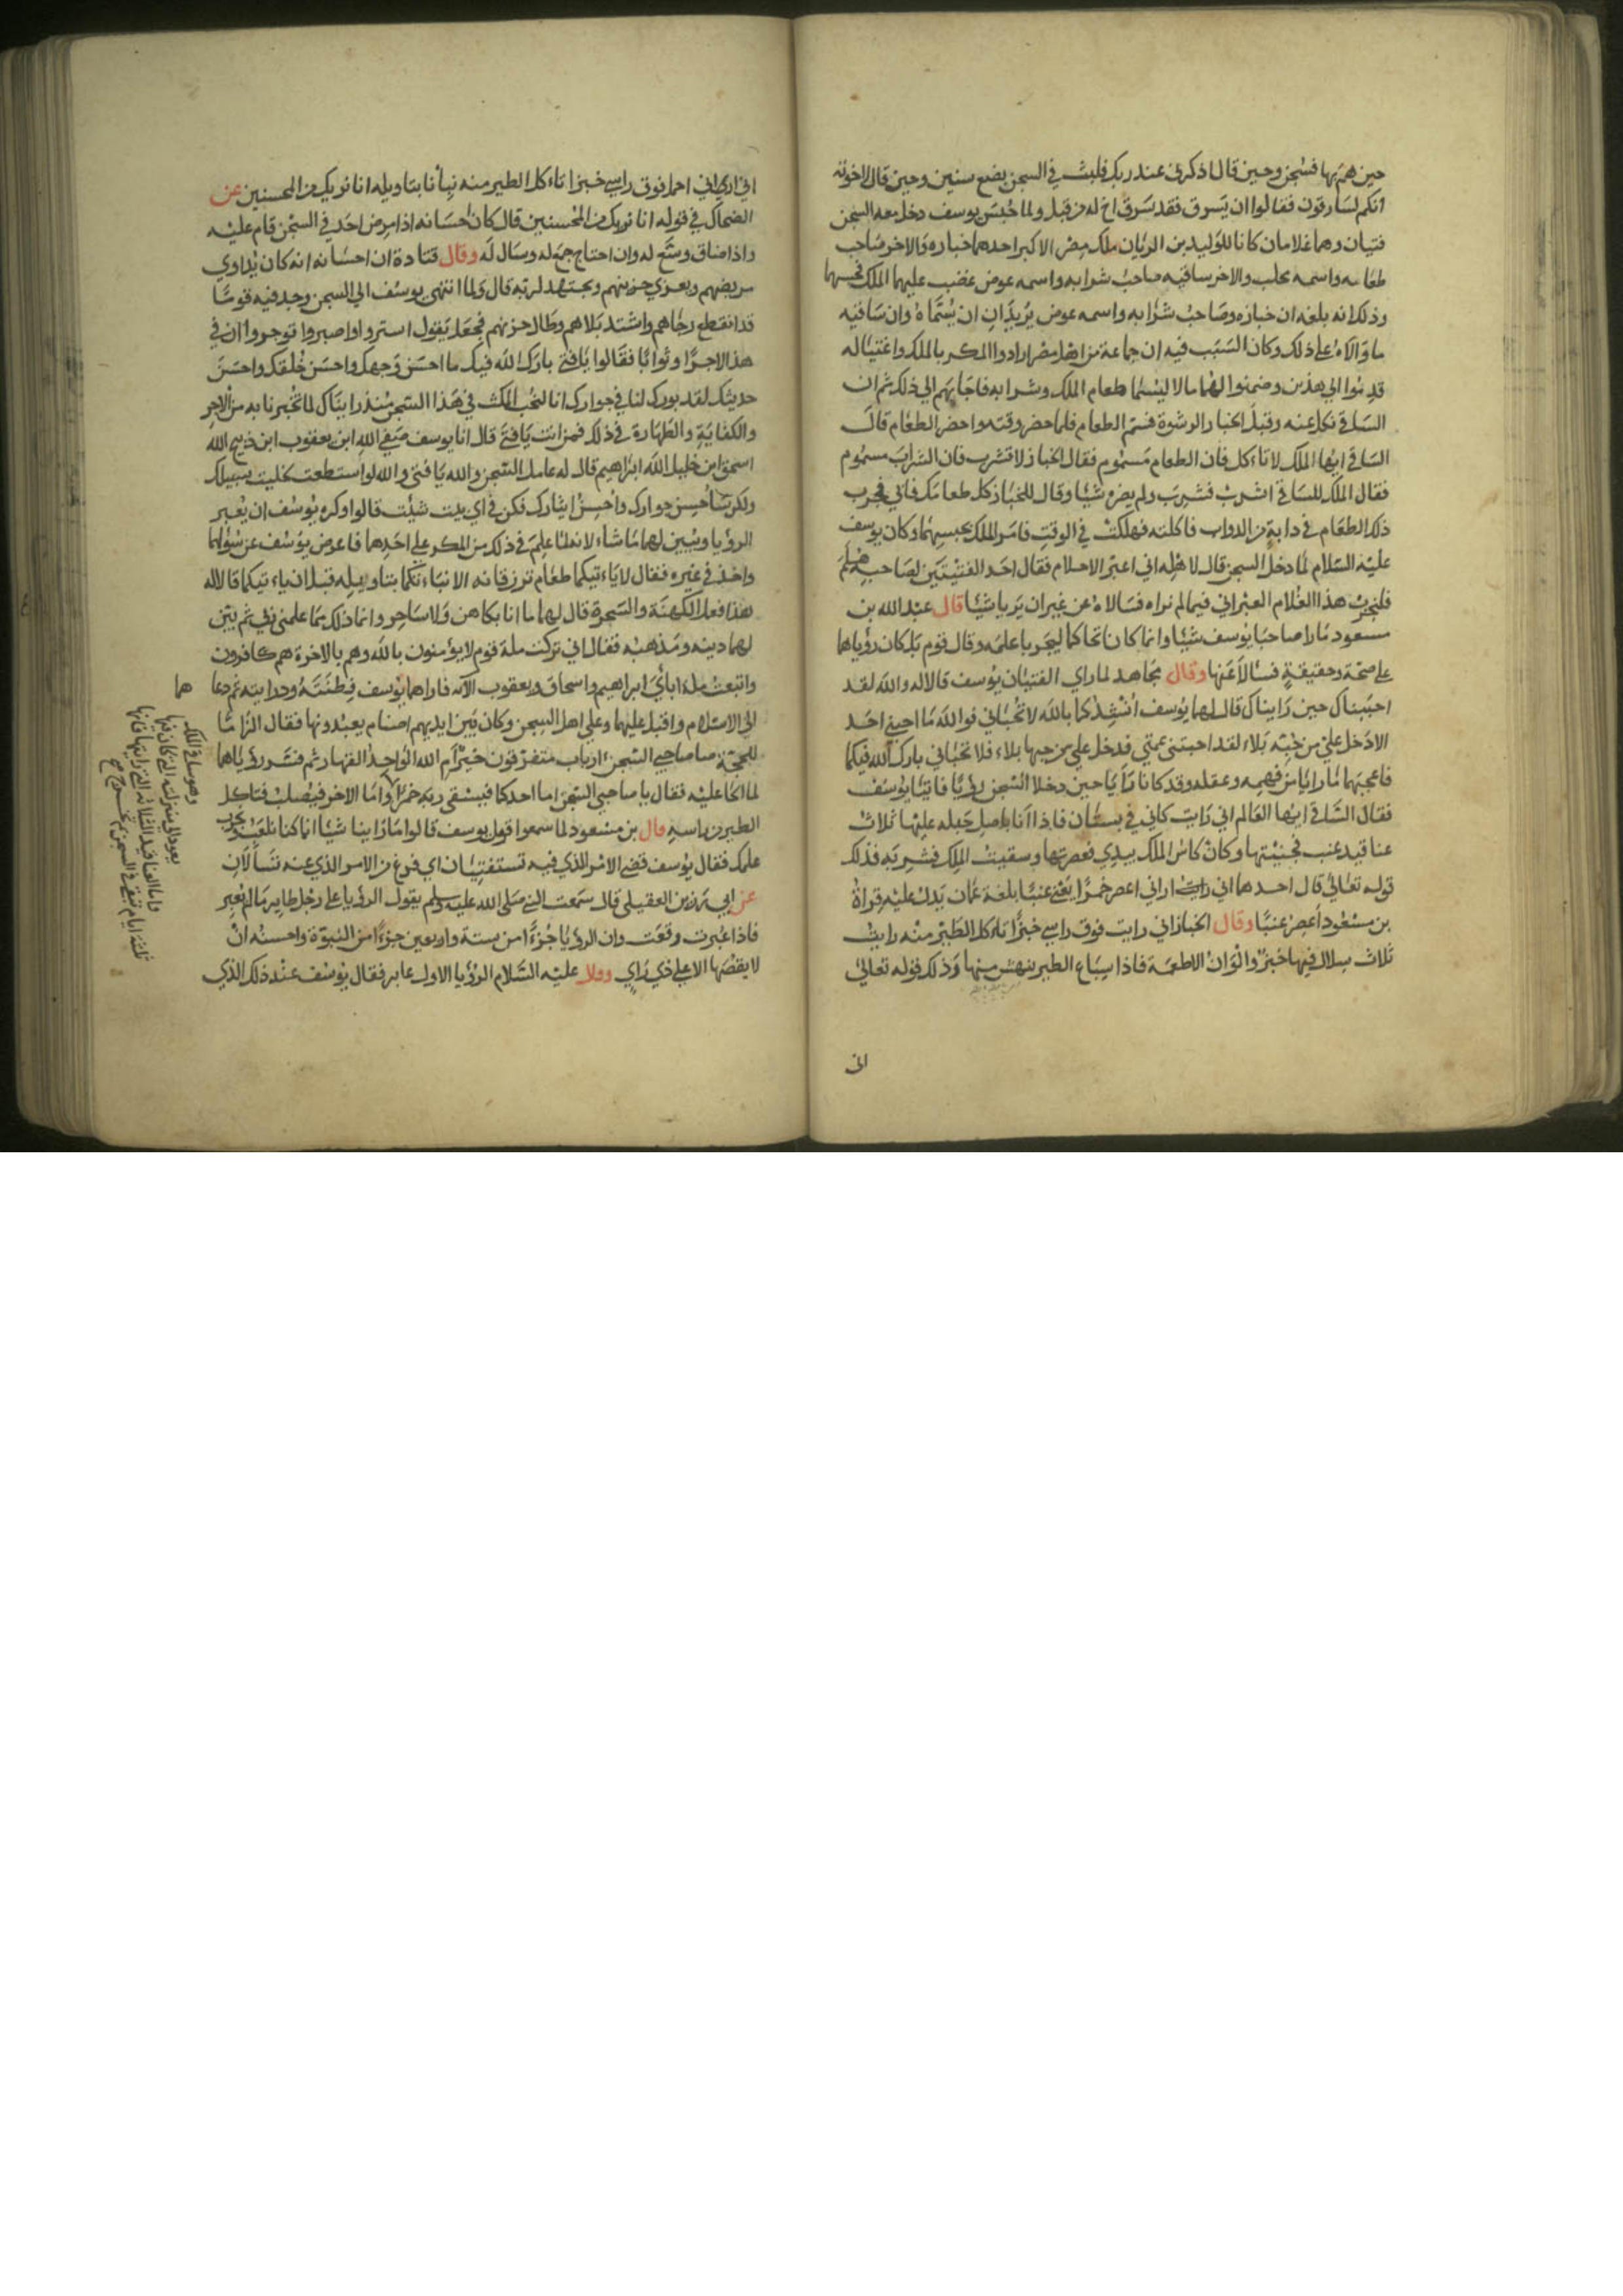 حين هم بها فسجن وحين قال اذكرني عند ربك فلبث في السجن بضع سنين وحين قال لاخوته
انكم لسارقون فقالوا ان يسرق فقد سرق اخ له من قبل ولما حبس يوسف دخل معه السجن
فتيان وهما غلامان كانا للوليد بن الريان ملك مصر الاكبر احدهما خبازه والاخر صاحب
طعامه واسمه مجلب والاخر ساقيه صاحب شرابه واسمه عوض غضب عليهما الملك فحبسهما
وذلك انه بلغه ان خبازه وصاحب شرابه واسمه عوض يريدان ان يسماه وان ساقيه
مالاه على ذلك وكان السبب فيه ان جماعة من اهل مصر ارادوا المكر بالملك واغتياله
فدسوا الى هذين وضمنوا لهما مالا ليسما طعام الملك وشرابه فاجابهم الى ذلك ثم ان
الساقي نكل عنه وقبل الخباز الرشوة فسم الطعام فلما حضر وقته واحضر الطعام قال
الساقي ايها الملك لا تاءكل فان الطعام مسموم فقال الخباز لا تشرب فان الشراب مسموم
فقال الملك للساقي اشرب فشرب ولم يضره شيئا وقال للخباز كل طعامك فابى فجرب
ذلك الطعام في دابة من الدواب فاكلته فهلكت في الوقت فامر الملك بحبسهما وكان يوسف
عليه السلام لما دخل السجن قال لاهله اني اعبر الاحلام فقال احد الفتيتين لصاحبه هلم
فلنجرب هذا الغلام العبراني فيما لم نراه فسالاه عن غير ان يريا شيئا قال عبد الله بن
مسعود ما را صاحبا يوسف شيئا وانما كانا تحاكما ليجربا علمه وقال قوم بل كان رؤياهما
على صحة وحقيقة فسالا عنها وقال مجاهد لما راي الفتيان يوسف قالا له والله لقد
احببناك حين رايناك قال لهما يوسف انشدكما بالله لا تحباني فوالله ما احبني احد
الا دخل علي من حبه بلاء لقد احبتني عمتي فدخل علي من حبها بلاء فلا تحباني بارك الله فيكما
فاعجبهما ما رايا من فهمه وعقله وقد كانا رايا حين دخلا السجن رؤيا فاتيا يوسف
فقال الساقي ايها العالم اني رايت كاني في بستان فاذا انا باصل حبله عليها ثلاث
عناقيد عنب فجنيتها وكان كاس الملك بيدي فعصرتها وسقيت الملك فشربه فذلك
قوله تعالى قال احدهما اني اراني اعصر خمرا يعني عنبا بلغة عمان يدل عليه قراة
بن مسعود اعصر عنبا وقال الخباز اني رايت فوق راسي خبزا تاءكل الطير منه رايت
ثلاث سلال فيها خبز والوان الاطعمة فاذا سباع الطير ينهش منها وذلك قوله تعالى
اني
اني اراني احمل فوق راسي خبزا تاءكل الطير منه نبأنا بتاويله انا نريك من المحسنين عن
الضحاك في قوله انا نريك من المحسنين قال كان احسانه اذا مرض احد في السجن قام عليه
واذا ضاق وسع له وان احتاج جمع له وسال له وقال قتادة ان احسانه انه كان يداوي
مريضهم ويعزي حزينهم ويجتهد لربه قال ولما انتهى يوسف الى السجن وجد فيه قوما
قد انقطع رجاهم واشتد بلاهم وطال حزنهم فجعل يقول استروا واصبروا توجروا ان في
هذا لاجرا وثوابا فقالوا يا فتى بارك الله فيك ما احسن وجهك واحسن خلقك واحسن
حديثك لقد بورك لنا في جوارك انا لنحب المكث في هذا السجن منذ رايناك لما تخبرنا به من الاجر
والكفاية والطهارة في ذلك فمن انت يا فتى قال انا يوسف صفي الله ابن يعقوب ابن ذبيح الله
اسحق ابن خليل الله ابراهيم قال له عامل السجن والله يا فتى والله لو استطعت لخليت سبيلك
ولكن ساحسن جوارك واحسن ايثارك فكن في اي بيت شيئت قالوا وكره يوسف ان يعبر
الرؤيا ويبين لهما ما شاء لانهما علم في ذلك من المكر على احدهما فاعرض يوسف عن سؤالهما
واخذ في غيره فقال لا ياءتيكما طعام ترزقانه الا نباءتكما بتاويله قبل ان ياءتيكما قالا له
هذا فعل الكهنة والسحرة قال لهما ما انا بكاهن ولا ساحر وانما ذلك مما علمني ربي ثم بين
لهما دينه ومذهبه فقال اني تركت ملة قوم لا يؤمنون بالله وهم بالاخرة هم كافرون
واتبعت ملة ابائي ابراهيم واسحاق ويعقوب الآيه فاراهما يوسف فطنته ودرايته ثم دعا هما
الى الاسلام واقبل عليهما وعلى اهل السجن وكان بين ايديهم اصنام يعبدونها فقال الزاما
للحجة يا صاحبي السجن ءارباب متفرقون خير ام الله الواحد القهار ثم فسر رؤياهما
لما الحا عليه فقال يا صاحبي السجن اما احدكما فيسقي ربه خمرا واما الاخر فيصلب فتاكل
الطير من راسه قال بن مسعود لما سمعوا قول يوسف قالوا ما راينا شيئا انما كنا نلعب نجرب
علمك فقال يوسف قضي الامر الذي فيه تستفتيان اي فرغ من الامر الذي عنه تسألان
عن ابي رزين العقيلي قال سمعت النبي صلى الله عليه وسلم يقول الرؤيا على رجل طاير ما لم تعبر
فاذا عبرت وقعت وان الرؤيا جزءا من ستة واربعين جزءا من النبوة واحسنه ان
لا يقصها الا على ذي راي وقال عليه السلام الرؤيا لاول عابر فقال يوسف عند ذلك الذي
وهو ساقي الملك
يعود الى منزلته التي كان فيها
واما العناقيد الثلاثه التي رايتها فانها
ثلثة ايام تبقى في السجن ثم تخرج صح